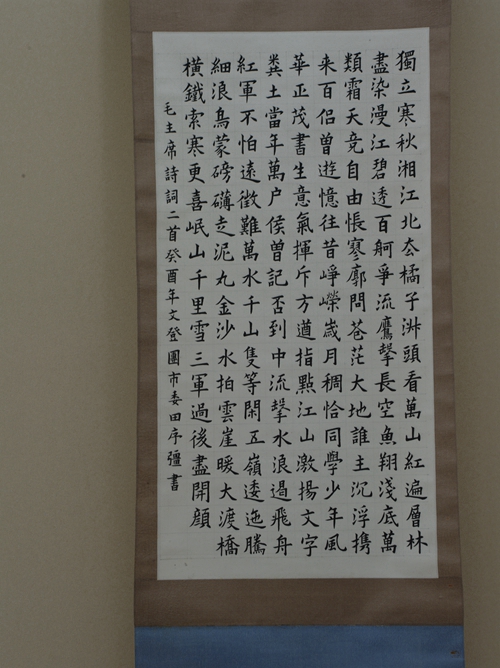 獨立寒秋湘江北厺橘子洲頭看萬山紅遍層林
盡染漫江碧透百舸爭流鷹擊長空魚翔淺底萬
類霜天竞自由悵寥廓問苍茫大地誰主沉浮携
来百侣曾遊憶往昔崢嶸歲月稠恰同學少年風
華正茂書生意氣揮斥方遒指點江山激揚文字
粪土當年萬户侯曾記否到中流擊水浪遏飛舟
紅軍不怕遠徵難萬水千山隻等閑五嶺逶迤騰
細浪烏蒙磅礴走泥丸金沙水拍雲崖暖大渡橋
橫鐵索寒更喜岷山千里雪三軍過後盡開顔
毛主席詩詞二首癸酉年文登團市委田序彊書